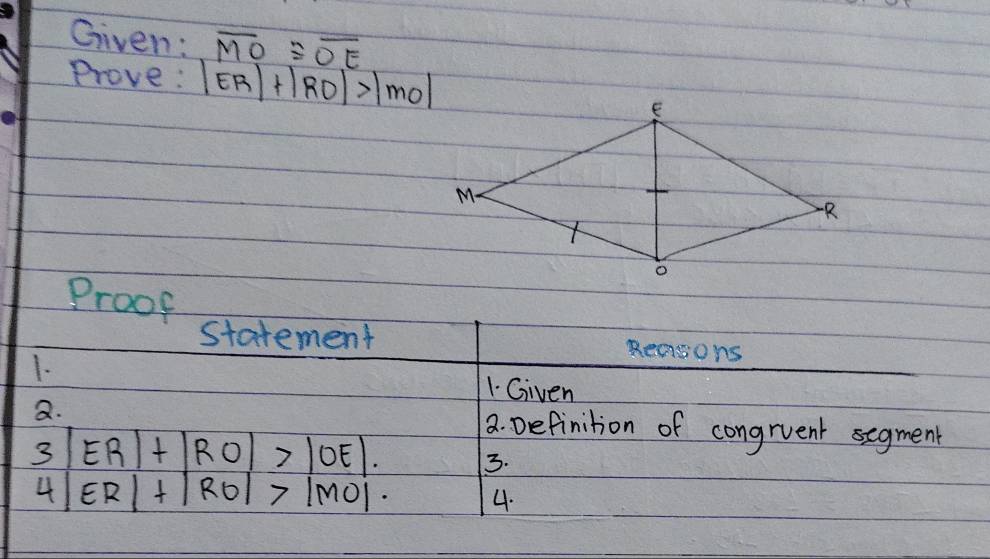 Given: MO ≅ OE
Prove: |ER| + |RO| > |mo|
E
M
R
O
Proof
Statement Reasons
1. 1. Given
2. 2. Definition of congruent segment
3 |ER| + |RO| > |OE|. 3.
4 |ER| + |RO| > |MO|. 4.